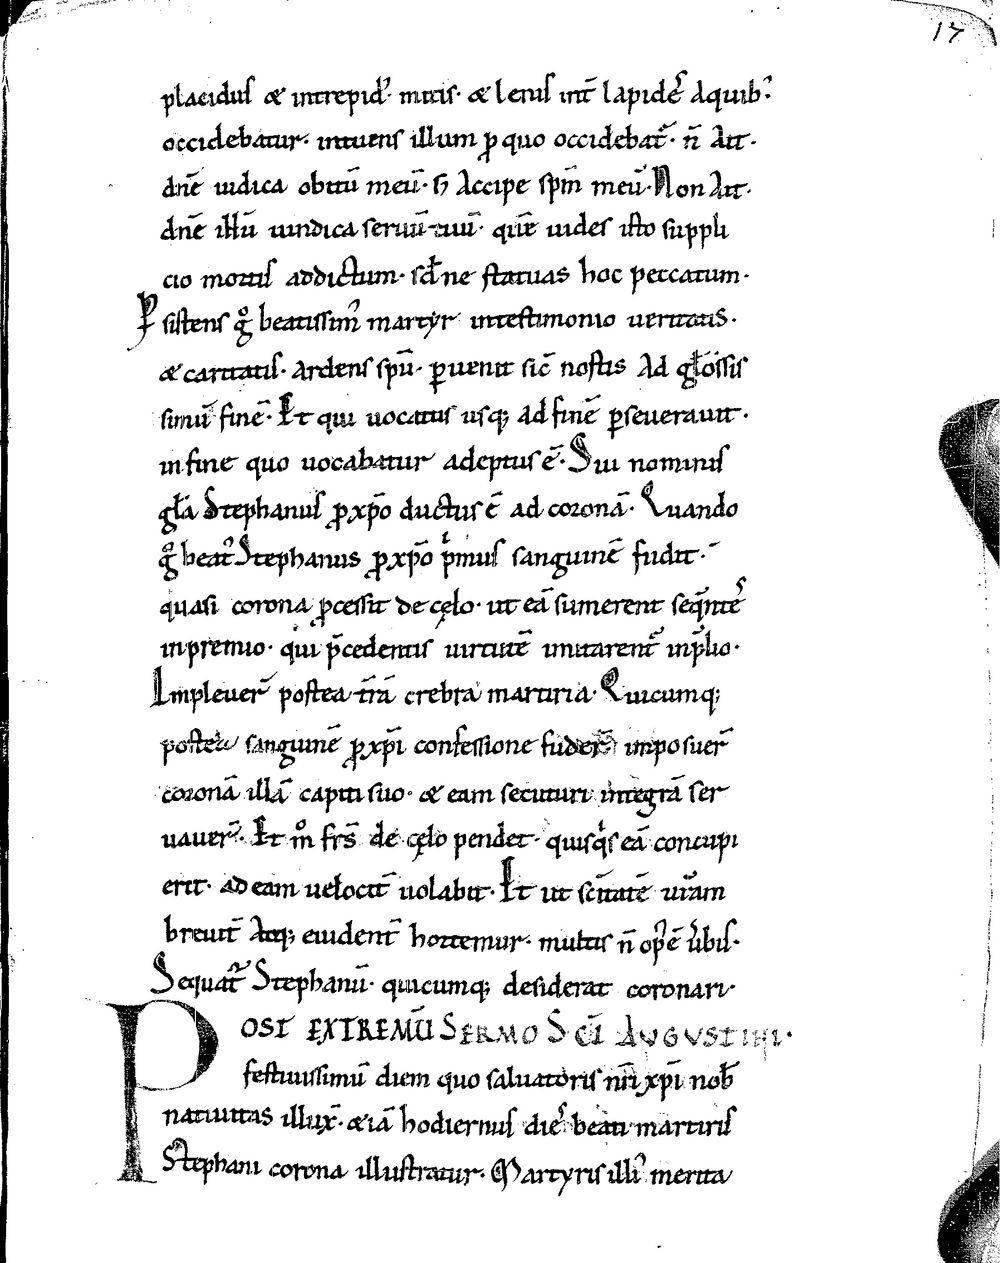 17
placidus & intrepid᾿· mitis· & lenis int̄ lapidēs Aquib᾿:
occidebatur· intuens illum ꝓ quo occidebat᷑· n̄ Ait·
dn̄e uidica obitū meū· sꝫ Accipe spm̄ meū· Non Ait·
dn̄e illū uindica seruū tuū· quē uides isto suppli
cio mortis addictum· sed̄ ne statuas hoc peccatum·
Psistens gͦ beatissim᾿ martyr intestimonio ueritatis·
& caritatis· Ardens spū· ꝑuenit sic̄ nostis Ad gl̄osissis
simū finē· Et qui uocatus usqꝫ ad finē ꝑseuerauit·
in fine quo uocabatur adeptus ē· Sui nominis
gl̄a Stephanus ꝓ xp̄o ductus ē ad coronā· Quando
gͦ beat᾿ Stephanus ꝓ xp̄o pͥmus sanguinē fudit·
quasi corona ꝓcessit de cęlo· ut eā sumerent seq̄ntes
in premio· qui p̄cedentis uirtutē imitarent᷑ in p̄lio·
Impleuer̄ postea t̄rā crebra martiria· Quicumqꝫ
postea sanguinē ꝓ xp̄i confessione fuder̄ imposuer̄
coronā illā capiti suo· & eam secuturi integrā ser
uauer̄· Et mͦ frs̄ de cęlo pendet· quisqͥs eā concupi
erit· ad eam uelocit̄ uolabit· Et ut sc̄itatē ur̄am
breuit̄ Atqꝫ euident̄ hortemur· multis n̄ op᾿ ē ūbis·
Sequat᷑ Stephanū· quicumqꝫ desiderat coronari·
POST EXTREMŪ SERMO SC̄I AUGUSTINI·
festiuissimū diem quo saluatoris nr̄i xp̄i nob̄
natiuitas illux̄· & iā hodiernus dies beati martiris
Stephani corona illustratur· Martyris illi᾿ merita